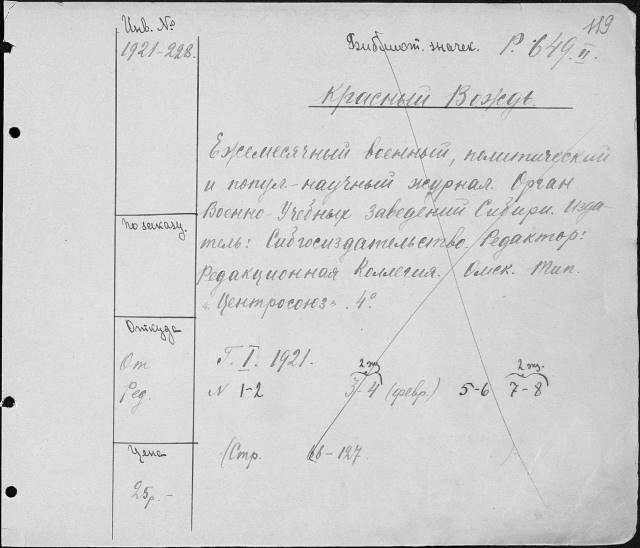 119
Инв. №
1921-228.
Библиот. значек. Р. 649. II.
Красный Вождь.
Ежемесячный военный, политический
и попул.-научный журнал. Орган
Военно-Учебных Заведений Сибири. Изда-
тель: Сибгосиздательство. Редактор:
Редакционная Коллегия. Омск. Тип.
"Центросоюз". 4°.
По заказу.
Откуда
От
Ред.
Г. I. 1921.
2 экз. 2 экз.
N 1-2 3-4 (февр.) 5-6 7-8
Цена
25р.-
(Стр. 66-127